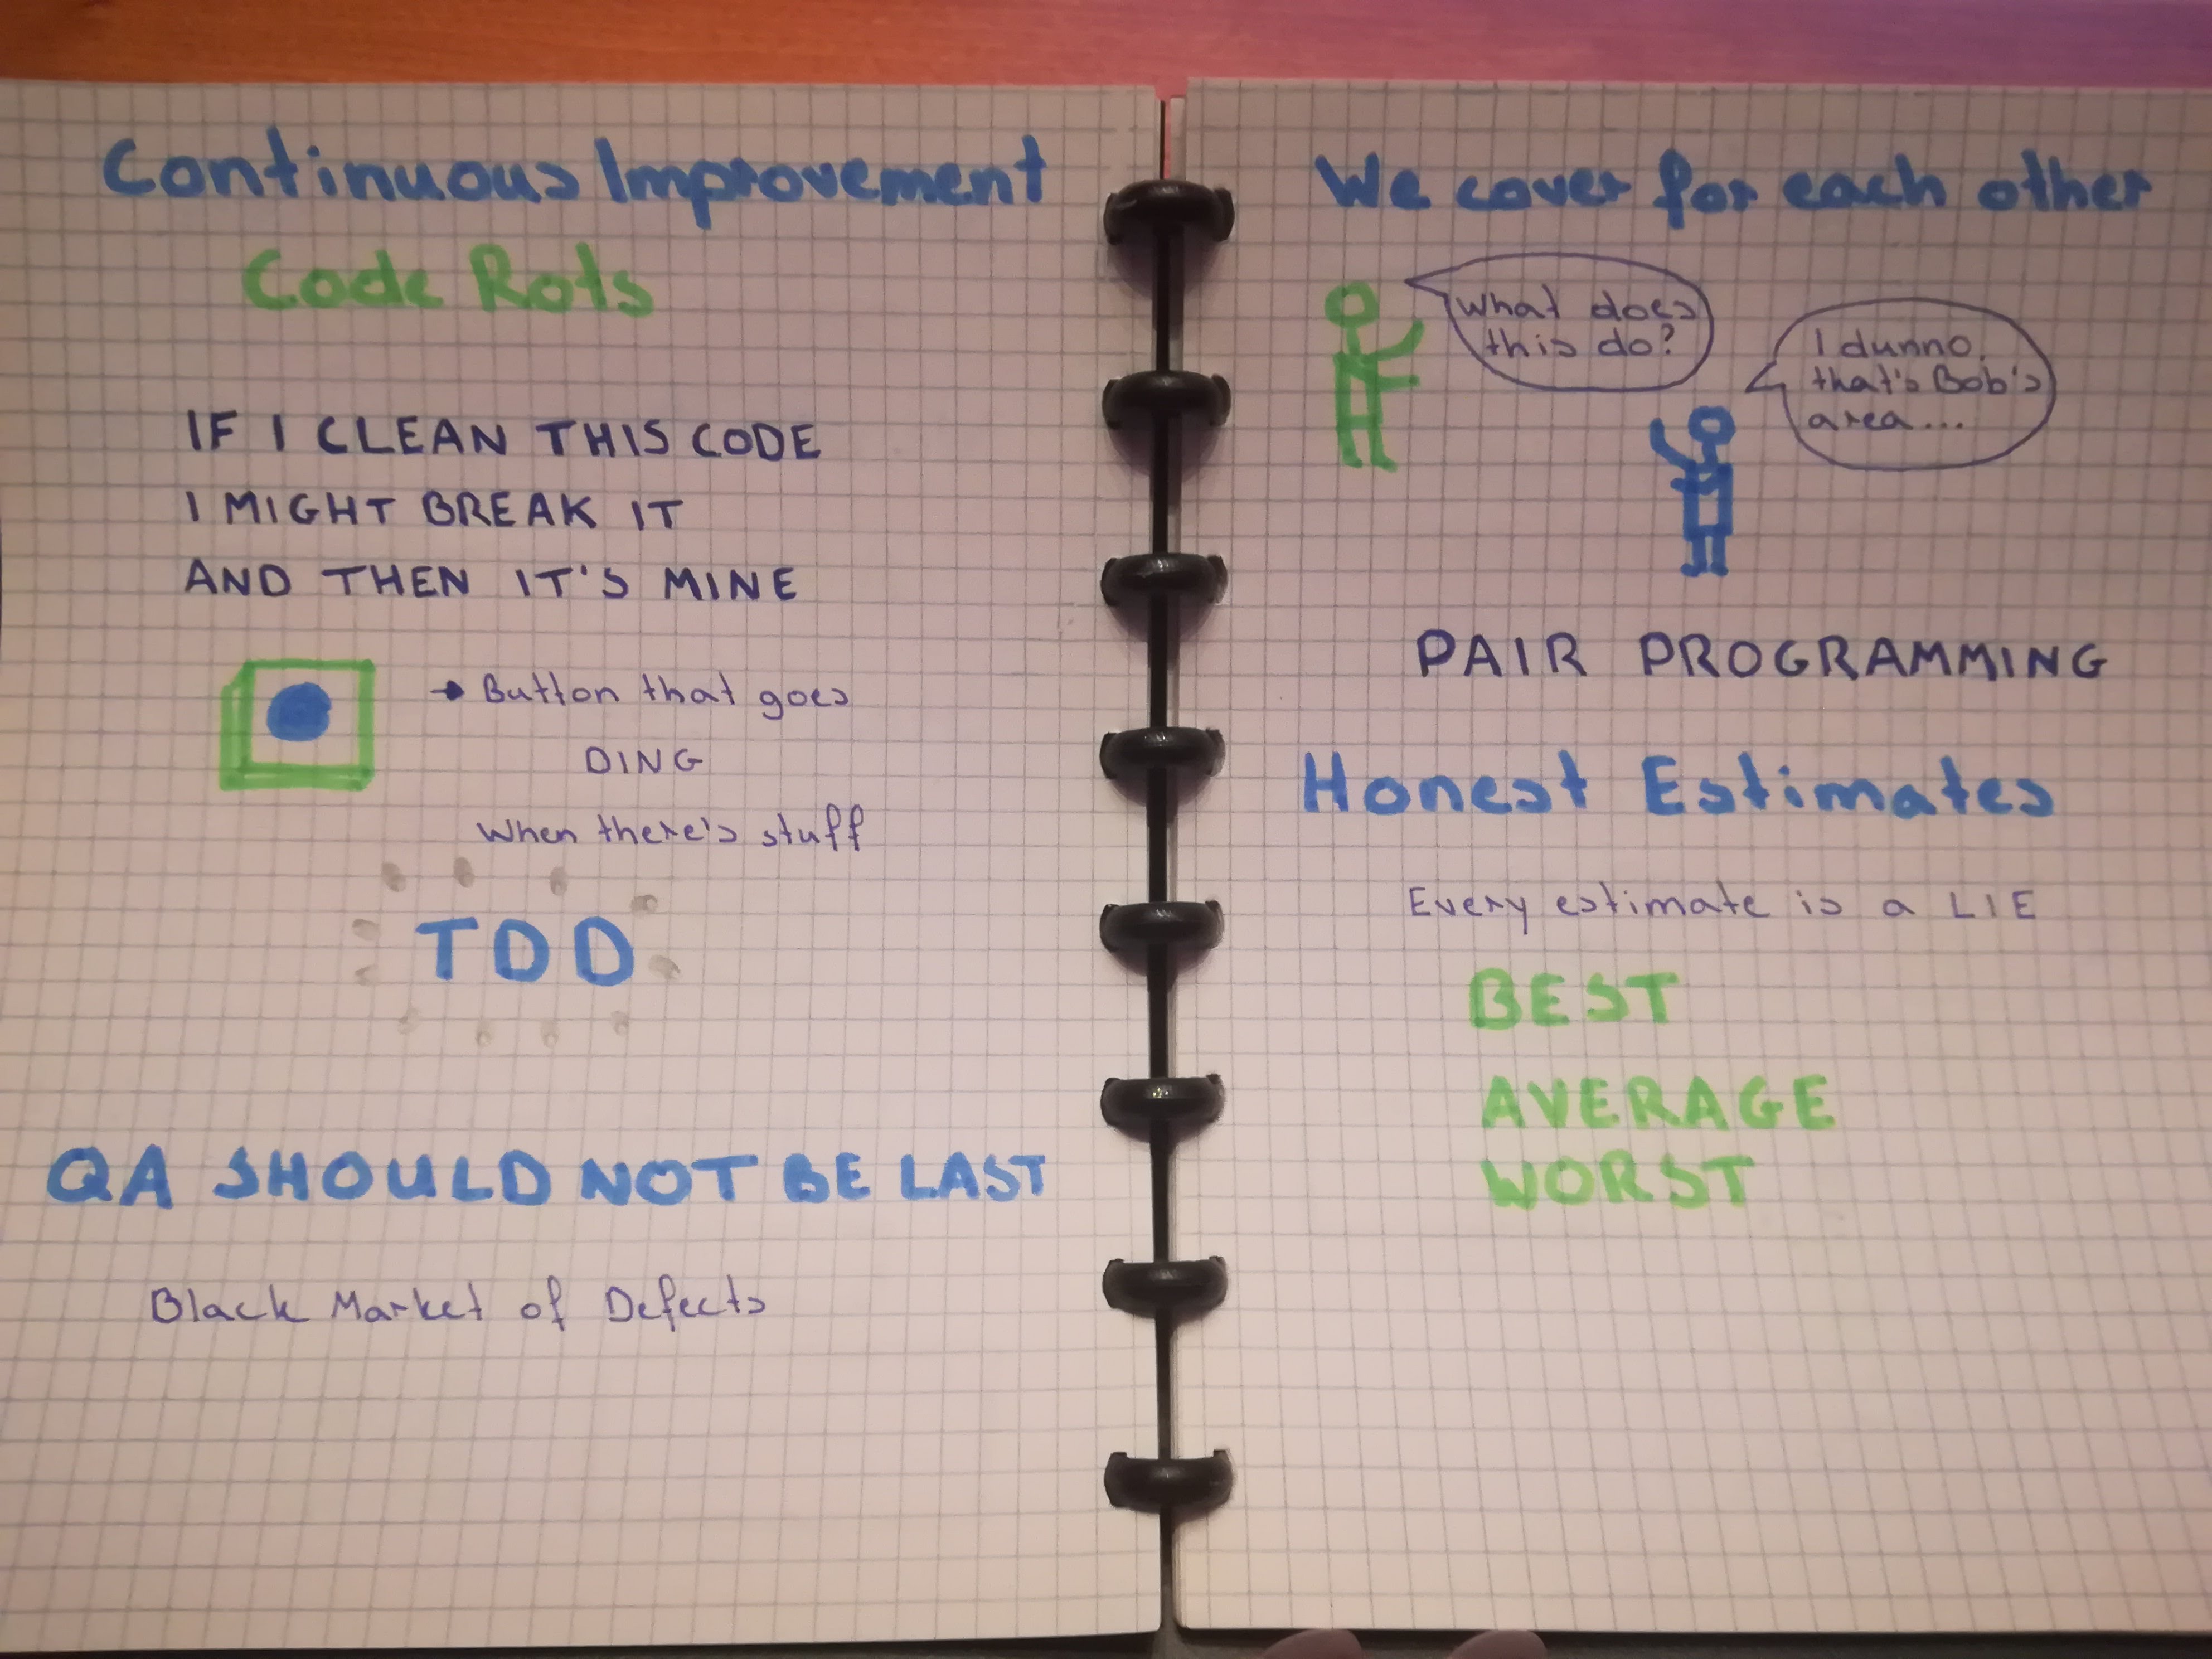 Continuous Improvement
Code Rots
IF I CLEAN THIS CODE
I MIGHT BREAK IT
AND THEN IT'S MINE
Button that goes
DING
When there's stuff
TDD
QA SHOULD NOT BE LAST
Black Market of Defects
We cover for each other
What does
this do?
I dunno,
that's Bob's
area...
PAIR PROGRAMMING
Honest Estimates
Every estimate is a LIE
BEST
AVERAGE
WORST